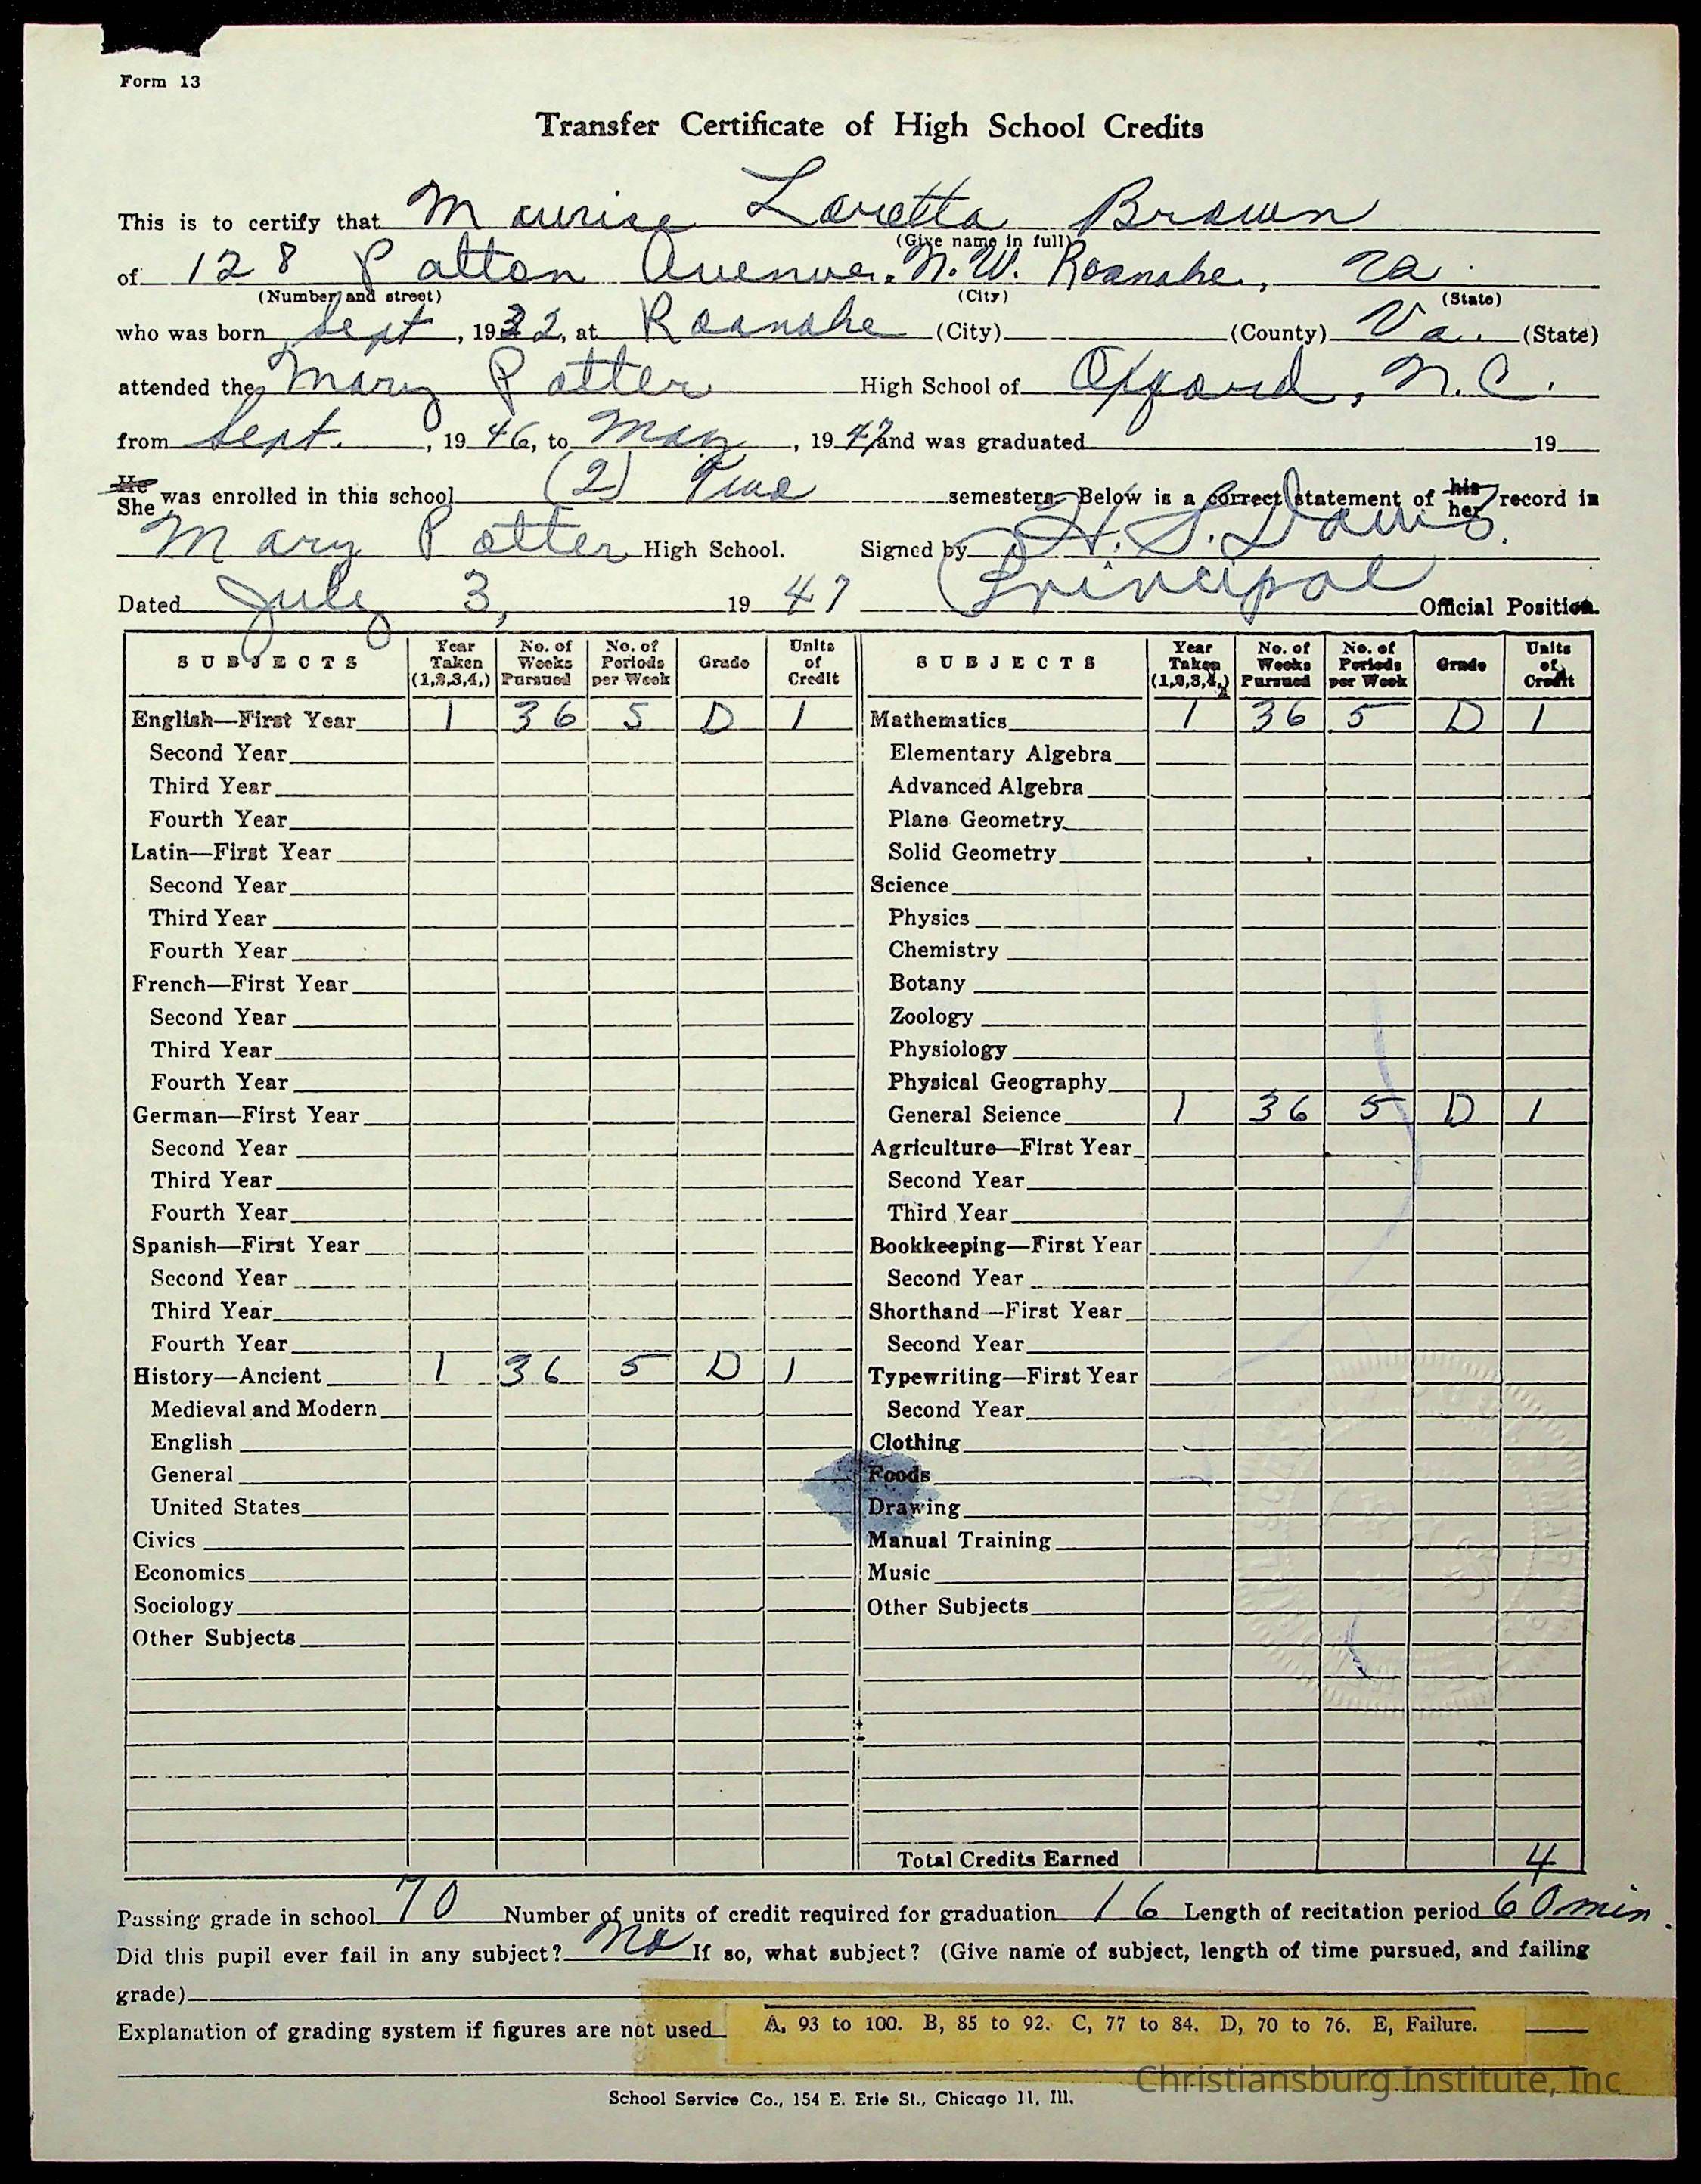 Form 13
Transfer Certificate of High School Credits
This is to certify that Maurise Loretta Brown
(Give name in full)
of 128 Patton Avenue, N.W. Roanoke, Va.
(Number and street) (City) (State)
who was born Sept, 1932, at Roanoke (City) (County) Va. (State)
attended the Mary Potter High School of Oxford, N.C.
from Sept., 19 46, to May, 19 47 and was graduated 19
He
She was enrolled in this school (2) Two semesters. Below is a correct statement of his her record in
Mary Potter High School. Signed by H. S. Davis.
Dated July 3, 19 47 (Principal Official Position.
SUBJECTS Year Taken (1,2,3,4,) No. of Weeks Pursued No. of Periods per Week Grade Units of Credit SUBJECTS Year Taken (1,2,3,4,) No. of Weeks Pursued No. of Periods per Week Grade Units of Credit
English—First Year 1 36 5 D 1 Mathematics 1 36 5 D 1
Second Year Elementary Algebra
Third Year Advanced Algebra
Fourth Year Plane Geometry
Latin—First Year Solid Geometry
Second Year Science
Third Year Physics
Fourth Year Chemistry
French—First Year Botany
Second Year Zoology
Third Year Physiology
Fourth Year Physical Geography
German—First Year General Science 1 36 5 D 1
Second Year Agriculture—First Year
Third Year Second Year
Fourth Year Third Year
Spanish—First Year Bookkeeping—First Year
Second Year Second Year
Third Year Shorthand—First Year
Fourth Year Second Year
History—Ancient 1 36 5 D 1 Typewriting—First Year
Medieval and Modern Second Year
English Clothing
General Foods
United States Drawing
Civics Manual Training
Economics Music
Sociology Other Subjects
Other Subjects
Total Credits Earned 4
Passing grade in school 70 Number of units of credit required for graduation 16 Length of recitation period 60 min.
Did this pupil ever fail in any subject? No If so, what subject? (Give name of subject, length of time pursued, and failing
grade)
Explanation of grading system if figures are not used A, 93 to 100. B, 85 to 92. C, 77 to 84. D, 70 to 76. E, Failure.
Christiansburg Institute, Inc
School Service Co., 154 E. Erie St., Chicago 11, Ill.